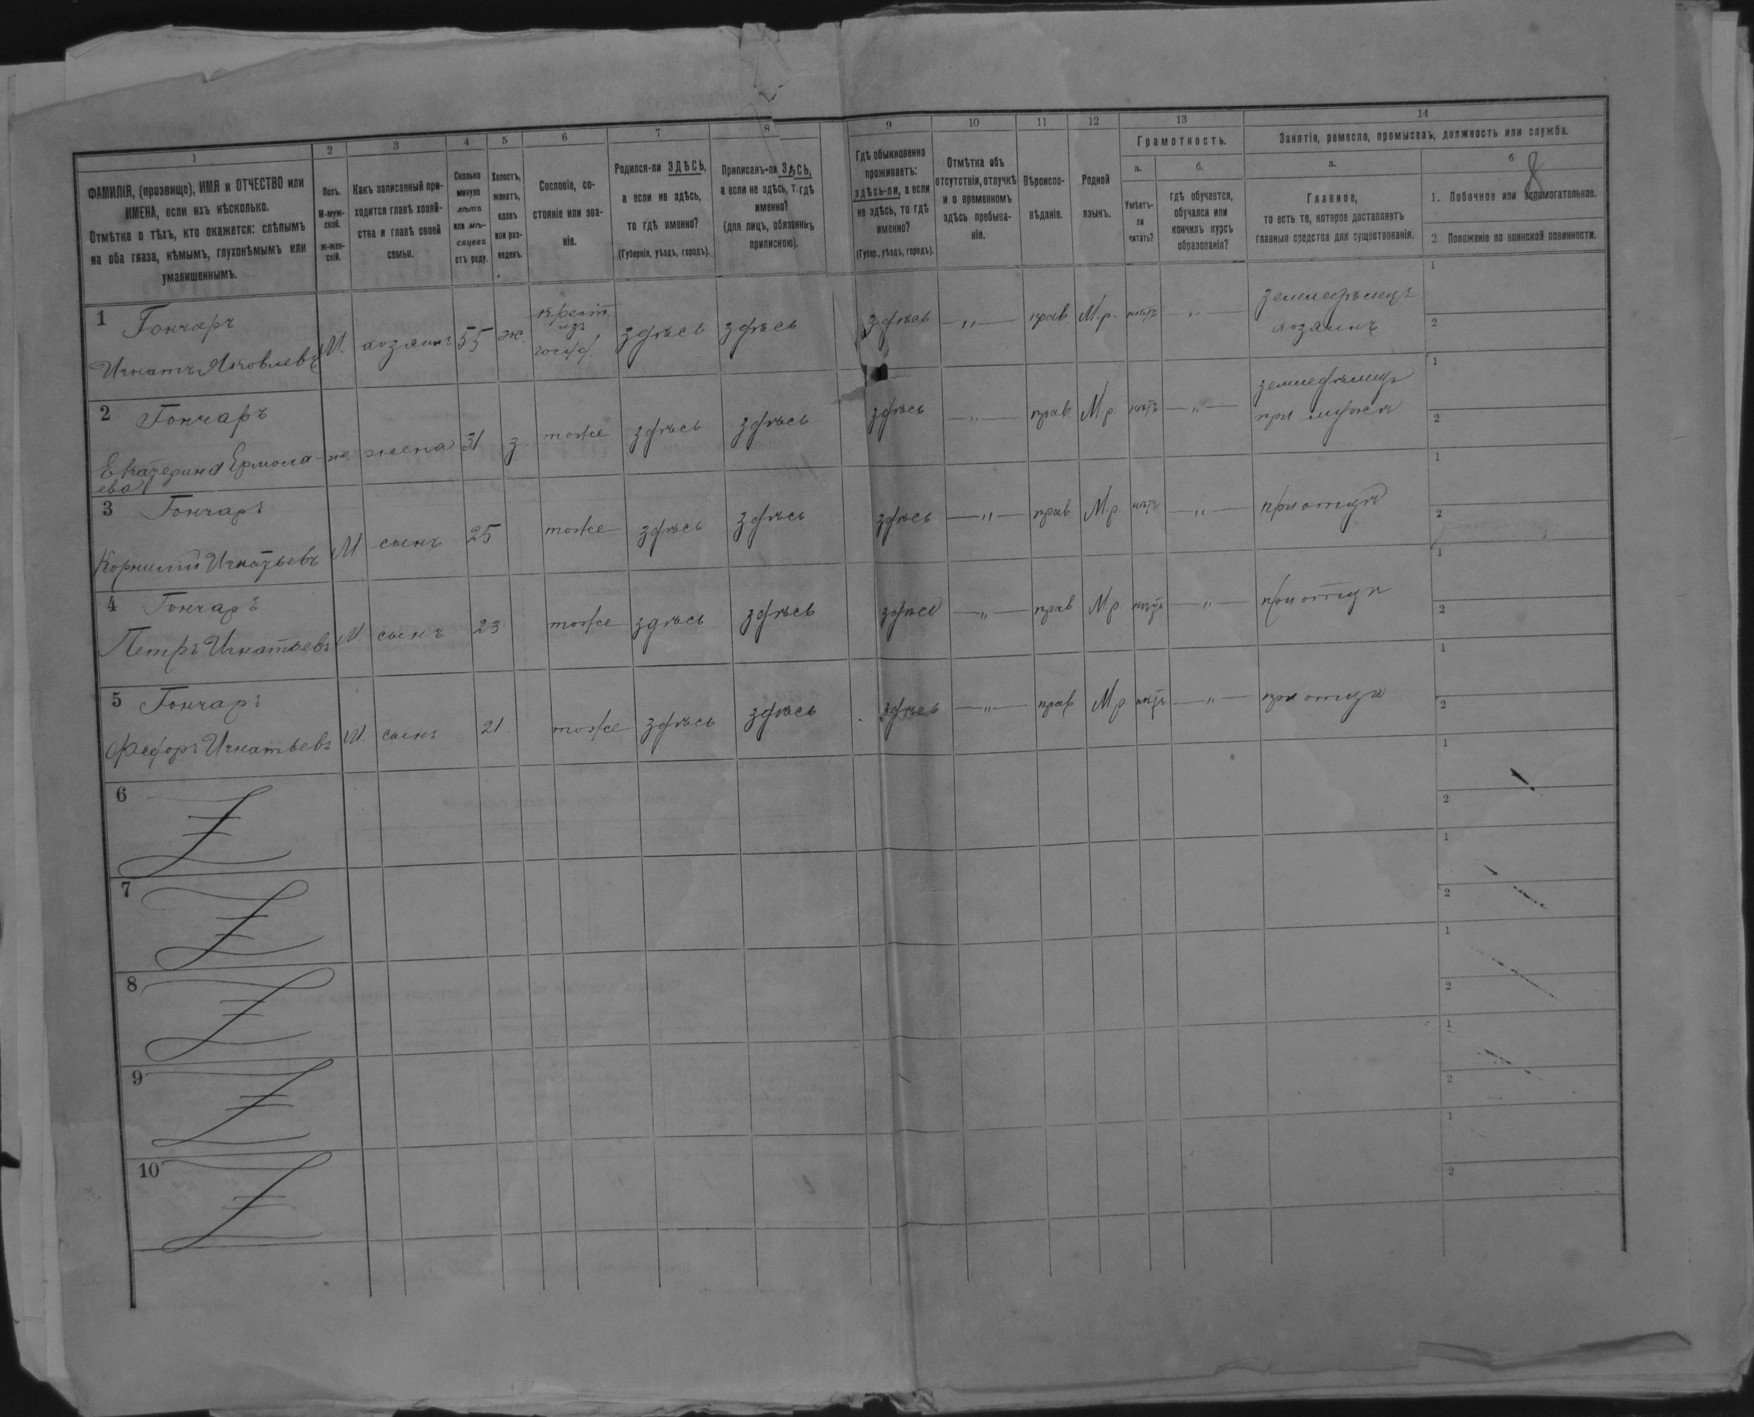 1 2 3 4 5 6 7 8 9 10 11 12 13 14
ФАМИЛІЯ, (прозвище), ИМЯ и ОТЧЕСТВО или
ИМЕНА, если ихъ нѣсколько.
Отмѣтка о тѣхъ, кто окажется: слѣпымъ
на оба глаза, нѣмымъ, глухонѣмымъ или
умалишеннымъ.
Полъ.
М-муж-
ской.
Ж-жен-
скій.
Какъ записанный при-
ходится главѣ хозяй-
ства и главѣ своей
семьи.
Сколько
минуло
лѣтъ
или мѣ-
сяцевъ
отъ роду.
Холостъ,
женатъ,
вдовъ
или раз-
веденъ.
Сословіе, со-
стояніе или зва-
ніе.
Родился-ли ЗДѢСЬ,
а если не здѣсь,
то гдѣ именно?
(Губернія, уѣздъ, городъ).
Приписанъ-ли ЗДѢСЬ,
а если не здѣсь, т. гдѣ
именно?
(для лицъ, обязанныхъ
припиской).
Гдѣ обыкновенно
проживаетъ:
здѣсь-ли, а если
не здѣсь, то гдѣ
именно?
(Губер., уѣздъ, городъ).
Отмѣтка объ
отсутствіи, отлучкѣ
и о временномъ
здѣсь пребыва-
ніи.
Вѣроиспо-
вѣданіе.
Родной
языкъ.
Грамотность.
а.
Умѣетъ-
ли
читать?
б.
гдѣ обучается,
обучался или
кончилъ курсъ
образованія?
Занятія, ремесло, промыселъ, должность или служба.
а.
Главное,
то есть то, которое доставляетъ
главныя средства для существованія.
б 8
1. Побочное или вспомогательное.
2 Положеніе по воинской повинности.
1 Гончаръ
Игнатъ Яковлевъ М. хозяинъ 55 ж. крест. изъ госуд. здѣсь здѣсь здѣсь —"— прав М.р. нѣтъ "— земледѣлецъ хозяинъ 1 2
2 Гончаръ
Екатерина Ермола- ж жена 31 з тоже здѣсь здѣсь здѣсь —"— прав М.р. нѣтъ —"— земледѣлец при мужѣ 1 2
ева
3 Гончаръ
Корнилій Игнатьевъ М. сынъ 25 тоже здѣсь здѣсь здѣсь —"— прав М.р нѣтъ —"— при отцѣ 1 2
4 Гончаръ
Петръ Игнатьевъ М. сынъ 23 тоже здѣсь здѣсь здѣсь —"— прав М.р нѣтъ —"— при отцѣ 1 2
5 Гончаръ
Федоръ Игнатьевъ М. сынъ 21 тоже здѣсь здѣсь здѣсь —"— прав М.р. нѣтъ —"— при отцѣ 1 2
6 1 2
7 1 2
8 1 2
9 1 2
10 1 2